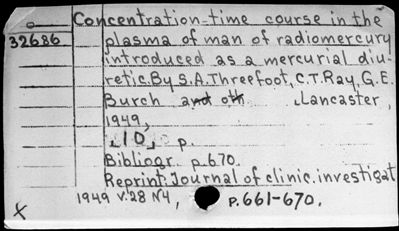 Concentration-time course in the
32686 plasma of man of radiomercury
introduced as a mercurial diu-
retic. By S.A. Threefoot, C.T. Ray, G.E.
Burch and oth Lancaster,
1949,
10 p.
Bibliogr. p. 670.
Reprint: Journal of clinic. investigat
1949 v.28 N4, p. 661-670.
X